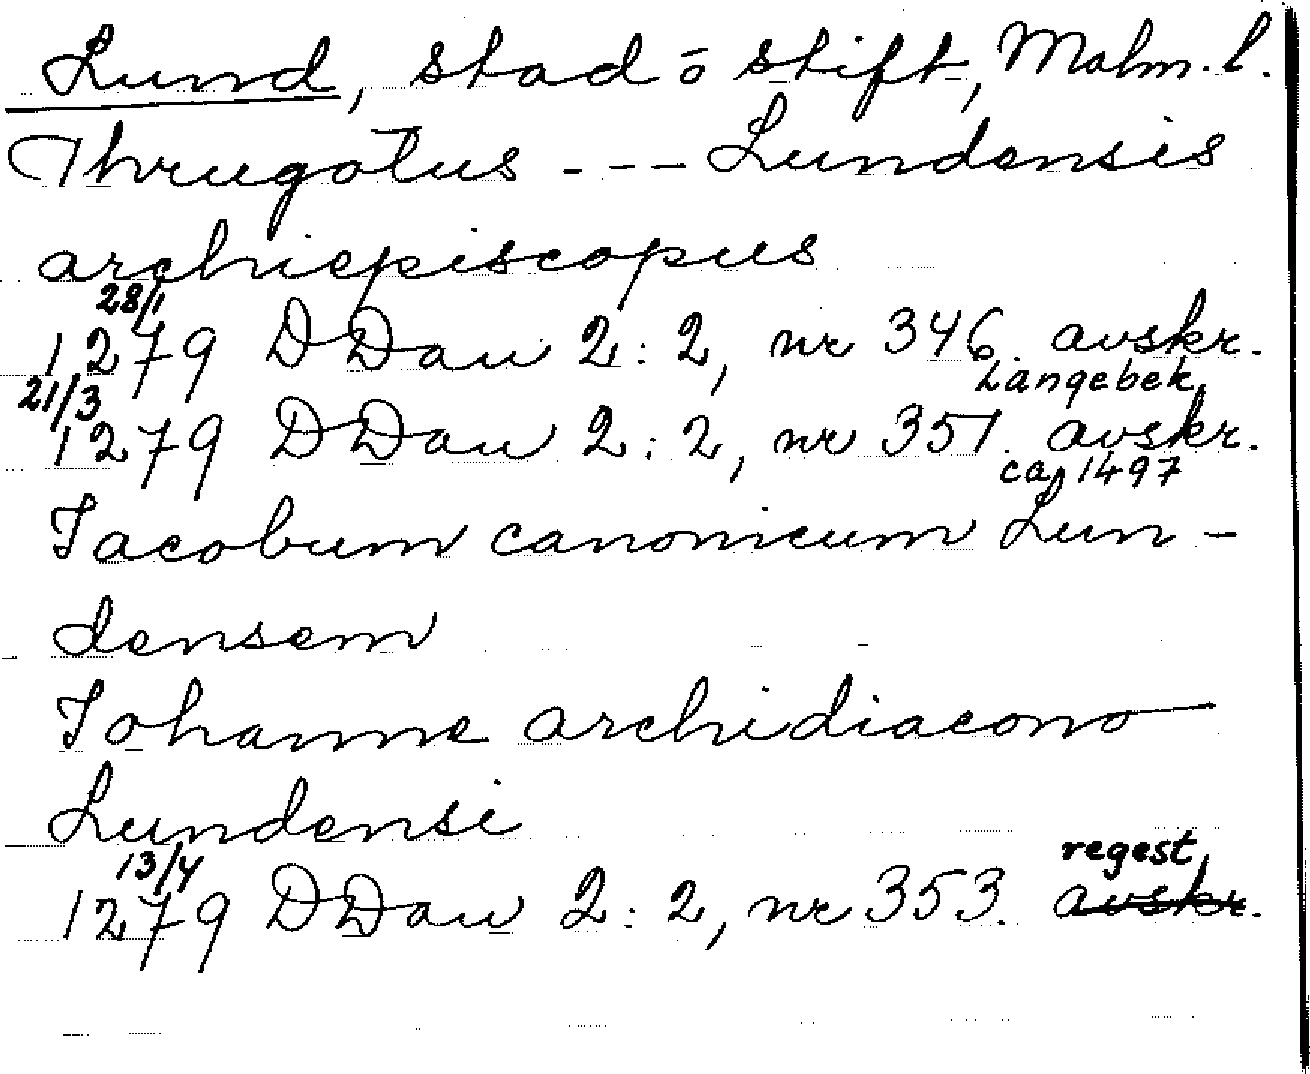 Lund, stad ō stift, Malm. l.
Thrugotus - - - Lundensis
archiepiscopus
28/1
1279 DDan 2:2, nr 346. avskr.
Langebek
21/3
1279 DDan 2:2, nr 351. avskr.
ca 1497
Iacobum canonicum Lun-
densem
Iohanne archidiacono
Lundensi
13/4
regest
1279 DDan 2:2, nr 353. avskr.